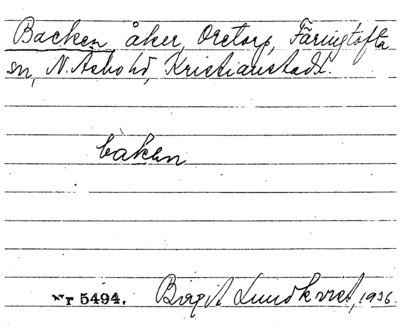 Backen åker, Oretorp, Färingtofta
sn, N. Åsbo hd, Kristianstads l.
bakən
Nr 5494. Birgit Lundkvist, 1936.